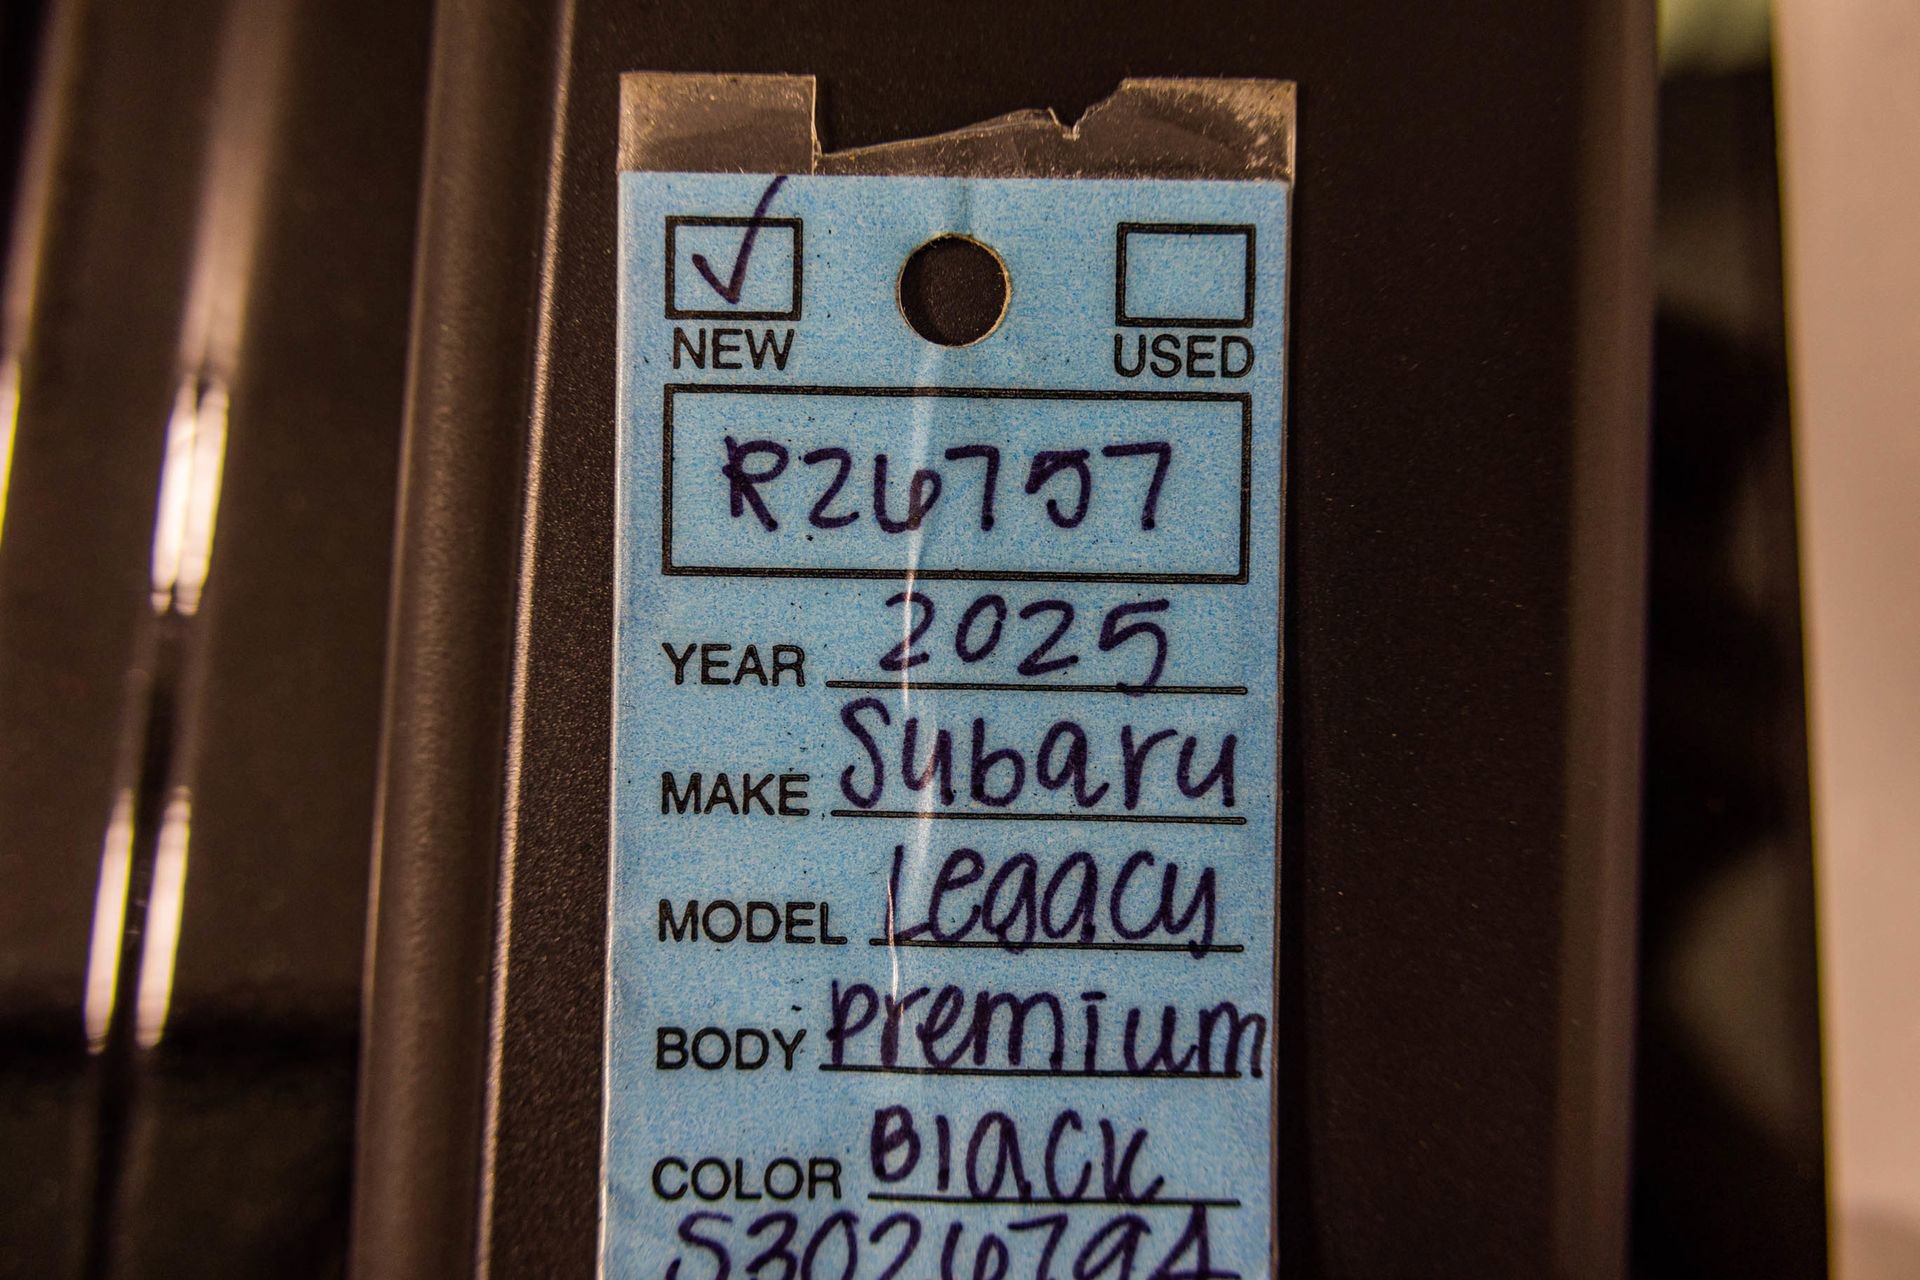 NEW USED
R26757
YEAR 2025
MAKE Subaru
MODEL Legacy
BODY Premium
COLOR Black